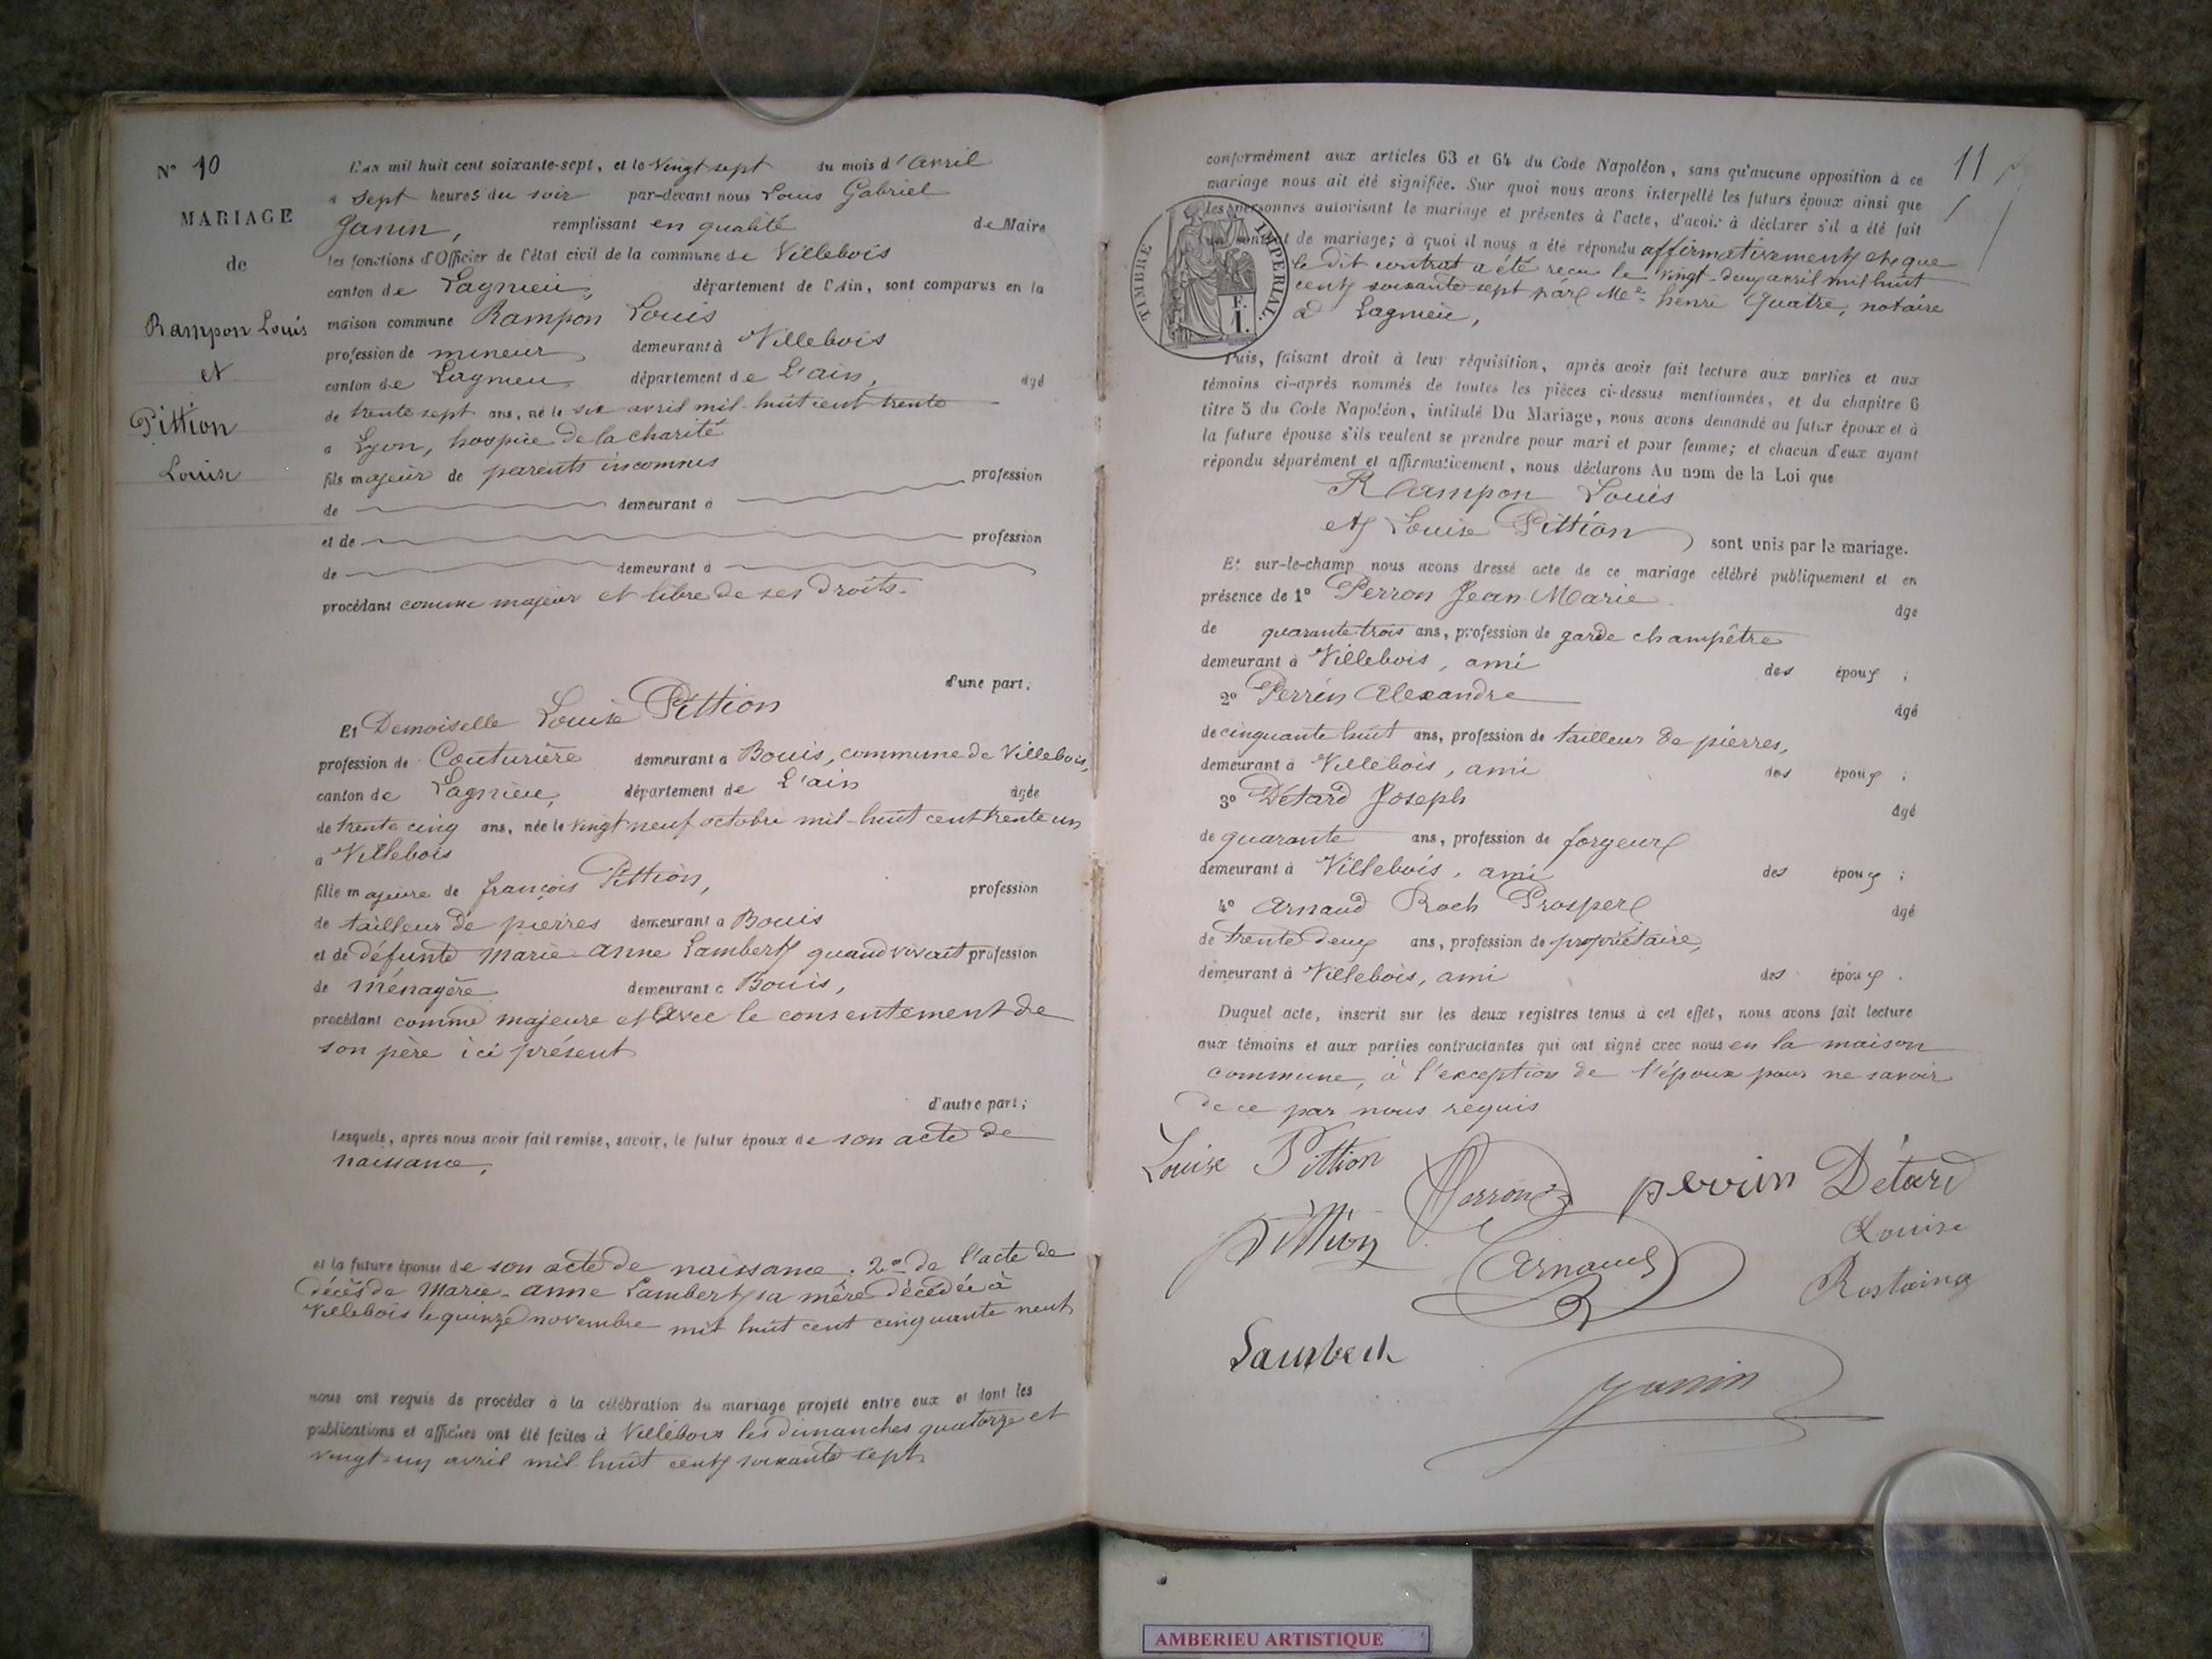 N° 10
MARIAGE
de
Rampon Louis
et
Pittion
Louise
L'an mil huit cent soixante-sept, et le vingt sept du mois d'avril
à sept heures du soir par-devant nous Louis Gabriel
Janin, remplissant en qualité de Maire
les fonctions d'Officier de l'état civil de la commune de Villebois
canton de Lagnieu, département de l'Ain, sont comparus en la
maison commune Rampon Louis
profession de mineur demeurant à Villebois
canton de Lagnieu département de L'ain, âgé
de trente sept ans, né le six avril mil huit cent trente
à Lyon, hospice de la charité
fils majeur de parents inconnus profession
de demeurant à
et de profession
de demeurant à
procédant comme majeur et libre de ses droits.
d'une part;
Et Demoiselle Louise Pittion
profession de Couturière demeurant à Bouis, commune de Villebois,
canton de Lagnieu, département de L'ain âgée
de trente cinq ans, née le vingt neuf octobre mil-huit cent trente un
à Villebois
fille majeure de françois Pittion, profession
de tailleur de pierres demeurant à Bouis
et de défunte Marie-anne Lambert quand vivait profession
de ménagère demeurant à Bouis,
procédant comme majeure et avec le consentement de
son père ici présent
d'autre part;
Lesquels, après nous avoir fait remise, savoir, le futur époux de son acte de
naissance,
et la future épouse de son acte de naissance. 2° de l'acte de
décès de Marie-anne Lambert sa mère décédée à
Villebois le quinze novembre mil huit cent cinquante neuf
nous ont requis de procéder à la célébration du mariage projeté entre eux et dont les
publications et affiches ont été faites à Villebois les dimanches quatorze et
vingt-un avril mil-huit cent soixante sept
11
conformément aux articles 63 et 64 du Code Napoléon, sans qu'aucune opposition à ce
mariage nous ait été signifiée. Sur quoi nous avons interpellé les futurs époux ainsi que
les personnes autorisant le mariage et présentes à l'acte, d'avoir à déclarer s'il a été fait
un contrat de mariage; à quoi il nous a été répondu affirmativement et que
le dit contrat a été reçu le vingt-deux avril mil huit
cent soixante sept par Me henri Quatre, notaire
à Lagnieu,
TIMBRE IMPERIAL
F.
1.
Puis, faisant droit à leur réquisition, après avoir fait lecture aux parties et aux
témoins ci-après nommés de toutes les pièces ci-dessus mentionnées, et du chapitre 6
titre 5 du Code Napoléon, intitulé Du Mariage, nous avons demandé au futur époux et à
la future épouse s'ils veulent se prendre pour mari et pour femme; et chacun d'eux ayant
répondu séparément et affirmativement, nous déclarons Au nom de la Loi que
Rampon Louis
et Louise Pittion sont unis par le mariage.
Et sur-le-champ nous avons dressé acte de ce mariage célébré publiquement et en
présence de 1° Perron Jean Marie âgé
de quarante trois ans, profession de garde champêtre
demeurant à Villebois, ami des époux ;
2° Perrin Alexandre âgé
de cinquante huit ans, profession de tailleur de pierres,
demeurant à Villebois, ami des époux ;
3° Détard Joseph âgé
de quarante ans, profession de forgeur
demeurant à Villebois, ami des époux ;
4° Arnaud Roch Prosper âgé
de trente deux ans, profession de propriétaire,
demeurant à Villebois, ami des époux.
Duquel acte, inscrit sur les deux registres tenus à cet effet, nous avons fait lecture
aux témoins et aux parties contractantes qui ont signé avec nous en la maison
commune, à l'exception de l'époux pour ne savoir
de ce par nous requis
Louise Pittion Perron perrin Détard
Pittion Arnaud Louise
Rostaing
Lambert
Janin
AMBERIEU ARTISTIQUE